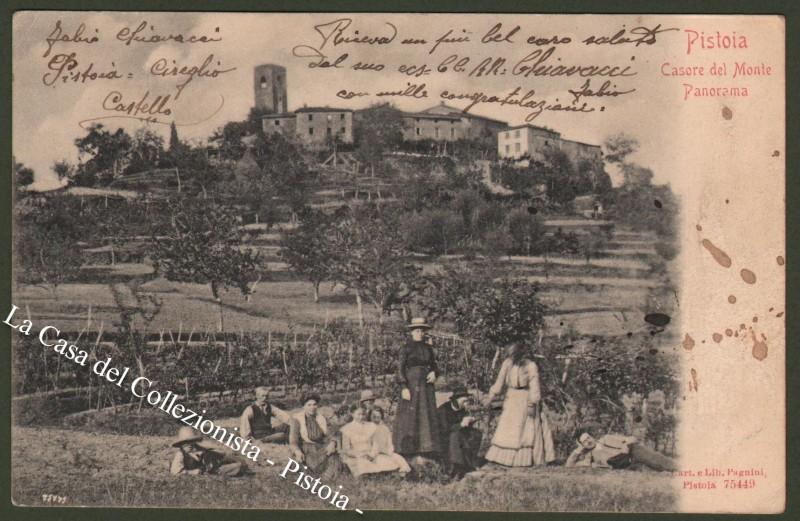 Fabio Chiavacci
Pistoia = Cireglio
Castello
Riceva un più bel caro saluto
dal suo
Chiavacci
Fabio
con mille congratulazioni =
Pistoia
Casore del Monte
Panorama
La Casa del Collezionista - Pistoia -
Cart. e Lib. Pagnini,
Pistoia 75449
75449